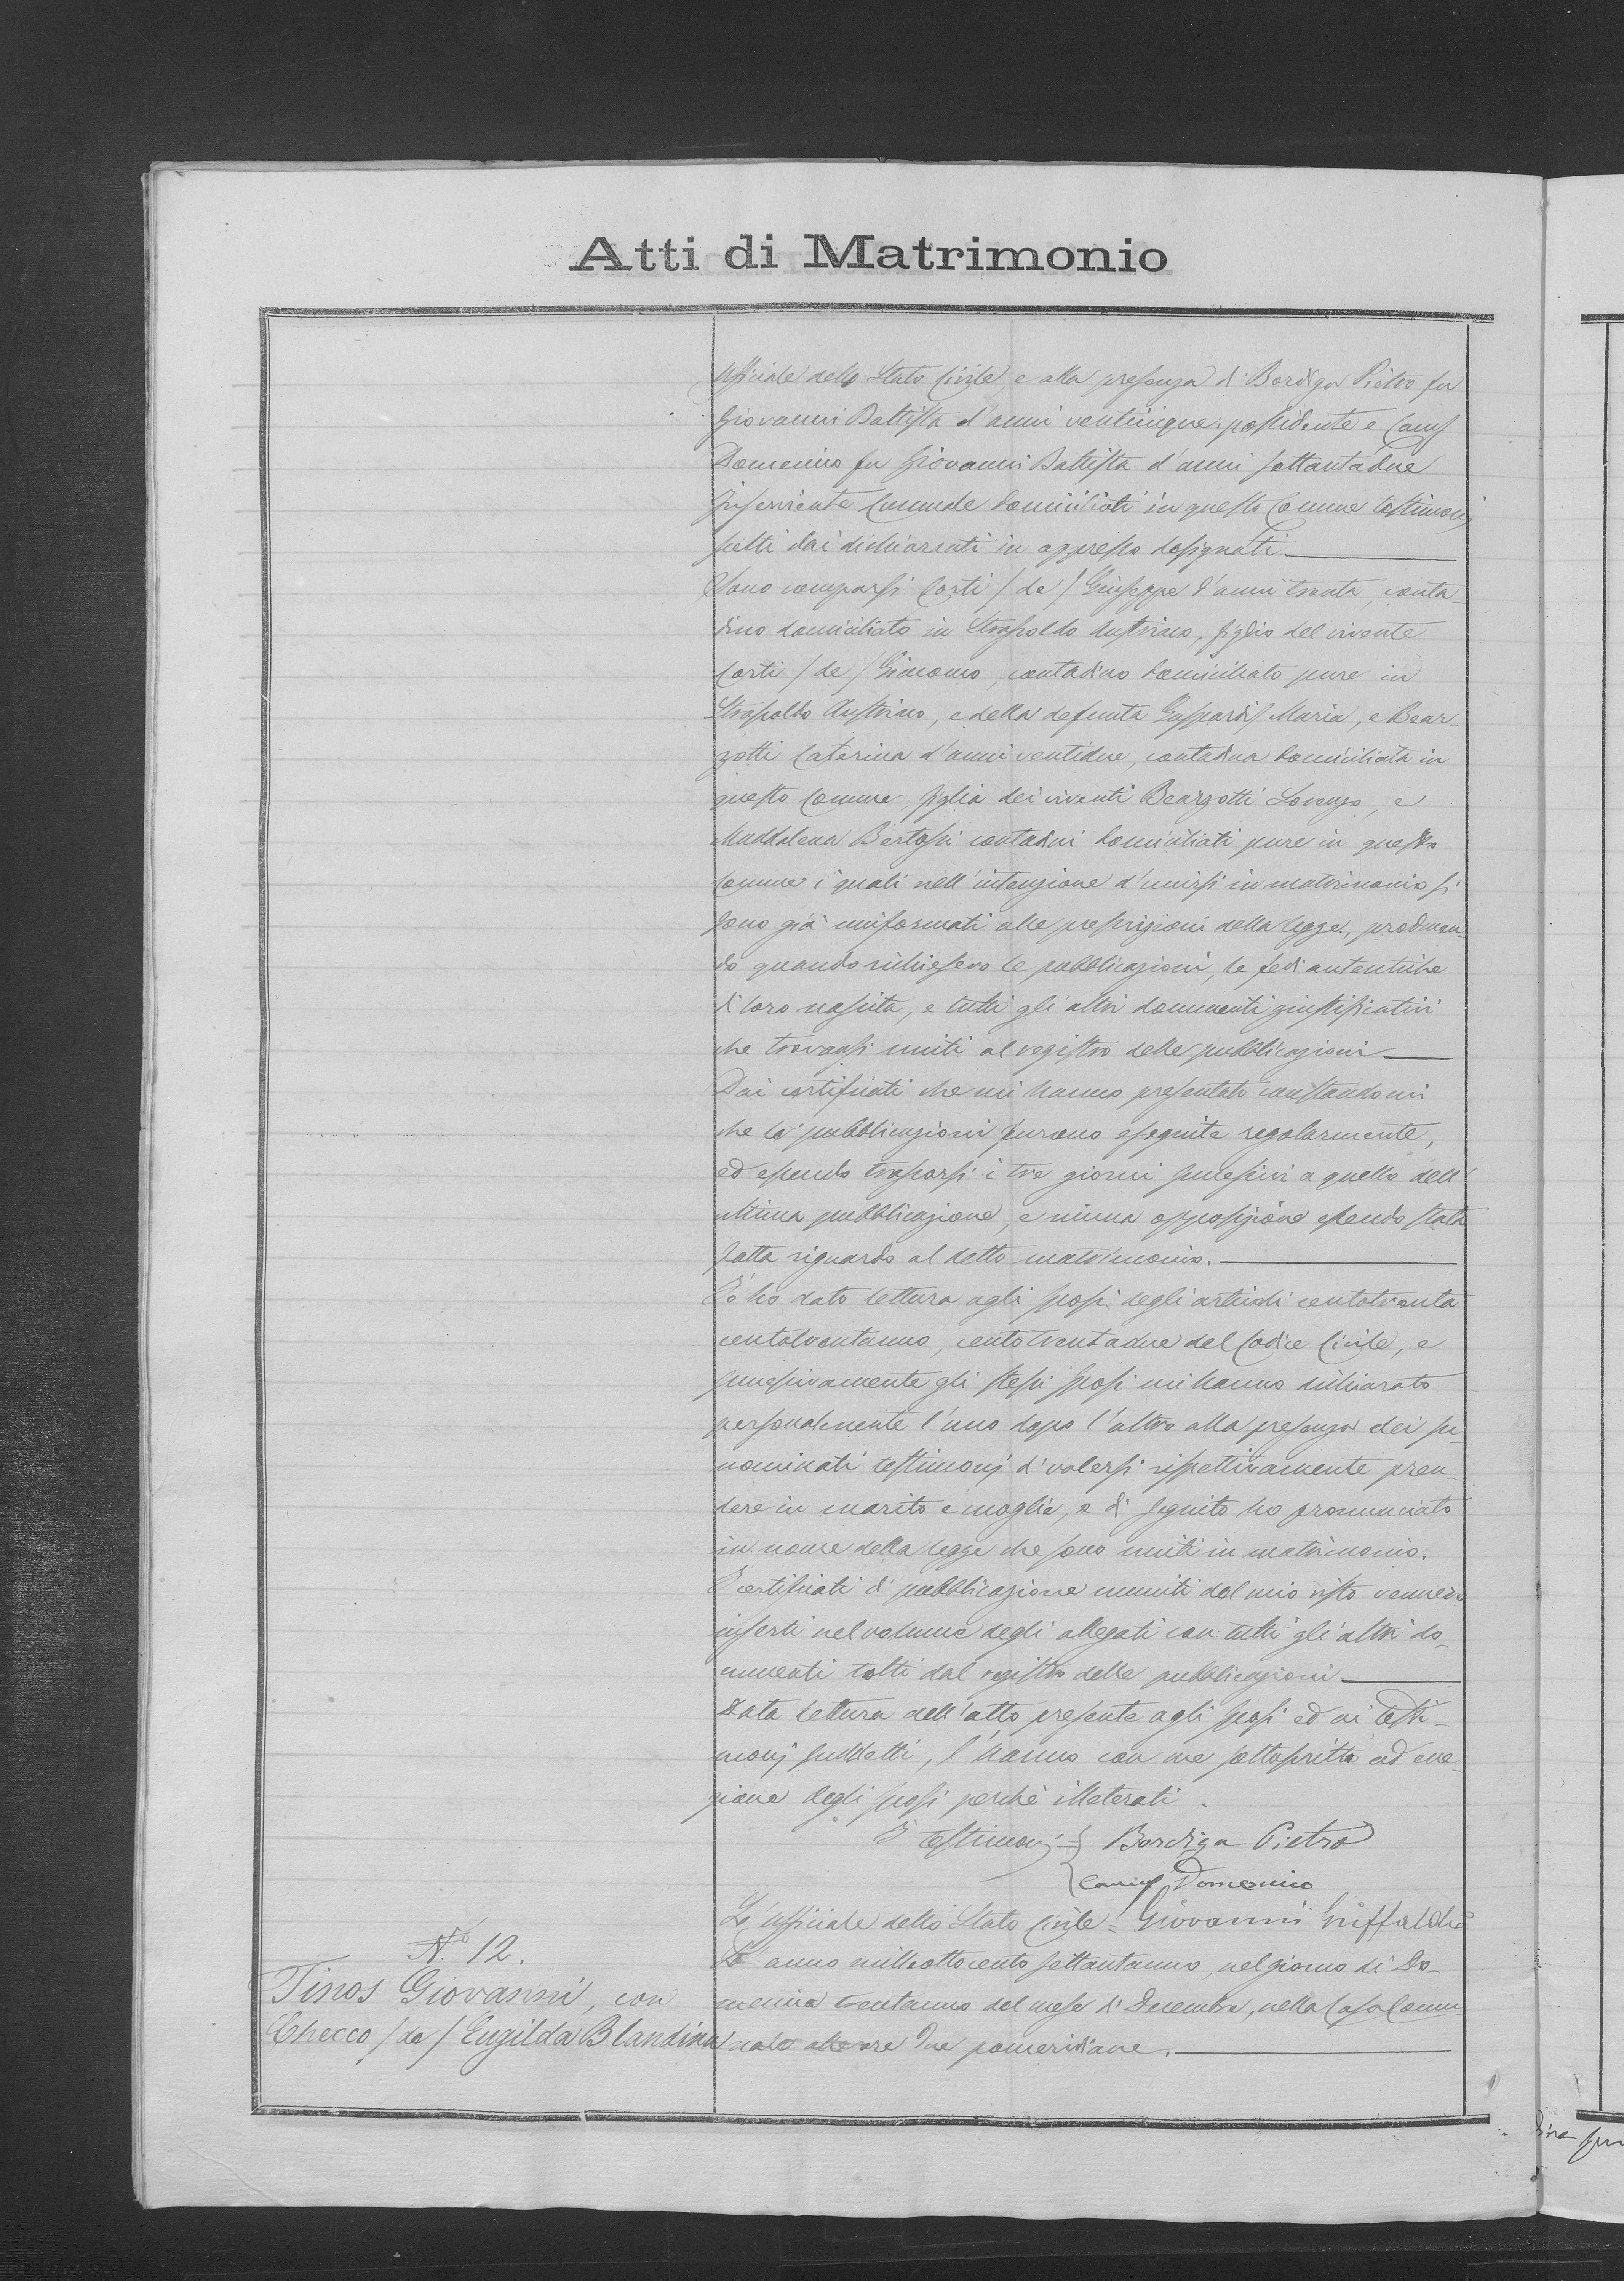 Atti di Matrimonio
Officiale dello Stato Civile, e alla presenza di Bordiga Pietro fu
Giovanni Battista d'anni venticinque, possidente e
Domenico fu Giovanni Battista d'anni settantadue
Inserviente Comunale domiciliati in questo Comune testimonj
scelti dai dichiaranti in appresso designati
Sono comparsi Corti / de / Giuseppe d'anni trenta, conta-
dino domiciliato in Strasoldo Austriaco, figlio del vivente
Corti / de / Giacomo, contadino domiciliato pure in
Strasoldo Austriaco, e della defunta Gaspardis Maria, e Bear-
zotti Caterina d'anni ventidue, contadina domiciliata in
questo Comune, figlia dei viventi Bearzotti Lorenzo, e
Maddalena Bertossi contadini domiciliati pure in questo
Comune i quali nell'intenzione d'unirsi in matrimonio si
sono già uniformati alle prescrizioni della legge, producen-
do quando richiesero le pubblicazioni, le fedi autentiche
di loro nascita, e tutti gli altri documenti giustificativi
che trovansi uniti al registro delle pubblicazioni
Dai certificati che mi hanno presentato constandomi
che le pubblicazioni furono eseguite regolarmente,
ed essendo trascorsi i tre giorni successivi a quello dell'
ultima pubblicazione, e niuna opposizione essendo stata
fatta riguardo al detto matrimonio.
Io ho dato lettura agli sposi degli articoli centotrenta
centotrentauno, centotrentadue del Codice Civile, e
successivamente gli stessi sposi mi hanno dichiarato
personalmente l'uno dopo l'altro alla presenza dei su-
nominati testimonj di volersi rispettivamente pren-
dere in marito e moglie, e di seguito ho pronunciato
in nome della legge che sono uniti in matrimonio.
I certificati di pubblicazione muniti del mio visto vennero
inserti nel volume degli allegati con tutti gli altri do-
cumenti tolti dal registro delle pubblicazioni
Data lettura dell'atto presente agli sposi ed ai testi-
monj suddetti, l'hanno con me sottoscritto ad ecce-
zione degli sposi perchè illeterati.
I testimonj = Bordiga Pietro
Domenico
L'Officiale dello Stato Civile = Giovanni Griffaldi
N.o 12.
Tinos Giovanni, con
Checco / de / Engilda Blandina
L'anno milleottocento settantauno, nel giorno di Do-
menica trentauno del mese di Decembre, nella Casa Comu-
nale alle ore due pomeridiane.